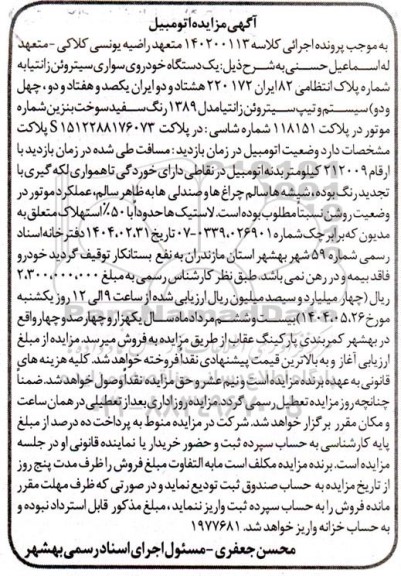 آگهی مزایده اتومبیل
به موجب پرونده اجرائی کلاسه ۱۴۰۲۰۰۱۱۳ متعهد راضیه یونسی کلاکی - متعهد
له اسماعیل حسنی به شرح ذیل: یک دستگاه خودروی سواری سیتروئن زانتیا به
شماره پلاک انتظامی ۸۲ ایران ۱۷۲ ۲۲۰ هشتاد و دو ایران یکصد و هفتاد و دو، چهل
و دو) سیستم و تیپ سیتروئن زانتیا مدل ۱۳۸۹ رنگ سفید سوخت بنزین شماره
موتور در پلاکت ۱۱۸۱۵۱ شماره شاسی : در پلاکت S ۱۵۱۲۲۸۸۱۷۶۰۷۳ پلاکت
مشخصات دارد وضعیت اتومبیل در زمان بازدید: مسافت طی شده در زمان بازدید با
ارقام ۲۱۲۰۰۹ کیلومتر بدنه اتومبیل در نقاطی دارای خوردگی ناهمواری لکه گیری با
تجدید رنگ بوده، شیشه ها سالم چراغ ها و صندلی ها به ظاهر سالم، عملکرد موتور در
وضعیت روشن نسبتا مطلوب بوده است. لاستیک ها حدوداً با ۵۰٪ استهلاک متعلق به
مدیون که برابر چک شماره ۰۳۳۹۰۲۶۹۰۱-۰۷ تاریخ ۱۴۰۴.۰۲.۳۱ دفترخانه اسناد
رسمی شماره ۵۹ شهر بهشهر استان مازندران به نفع بستانکار توقیف گردید خودرو
فاقد بیمه و در رهن نمی باشد. طبق نظر کارشناس رسمی به مبلغ ۲.۳۰۰.۰۰۰.۰۰۰
ریال (چهار میلیارد و سیصد میلیون ریال ارزیابی شده از ساعت ۹ الی ۱۲ روز یکشنبه
مورخ ۱۴۰۴.۰۵.۲۶) بیست و ششم مردادماه سال یکهزار و چهارصد و چهار واقع
در بهشهر کمربندی پارکینگ عقاب از طریق مزایده به فروش میرسد. مزایده از مبلغ
ارزیابی آغاز و به بالاترین قیمت پیشنهادی نقدا فروخته خواهد شد. کلیه هزینه های
قانونی به عهده برنده مزایده است و نیم عشر و حق مزایده نقداً وصول خواهد شد. ضمناً
چنانچه روز مزایده تعطیل رسمی گردد مزایده روز اداری بعد از تعطیلی در همان ساعت
و مکان مقرر برگزار خواهد شد. شرکت در مزایده منوط به پرداخت ده درصد از مبلغ
پایه کارشناسی به حساب سپرده ثبت و حضور خریدار یا نماینده قانونی او در جلسه
مزایده است. برنده مزایده مکلف است مابه التفاوت مبلغ فروش را ظرف مدت پنج روز
از تاریخ مزایده به حساب صندوق ثبت تودیع نماید و در صورتی که ظرف مهلت مقرر
مانده فروش را به حساب سپرده ثبت واریز ننماید، مبلغ مذکور قابل استرداد نبوده و
به حساب خزانه واریز خواهد شد. ۱۹۷۷۶۸۱
محسن جعفری - مسئول اجرای اسناد رسمی بهشهر